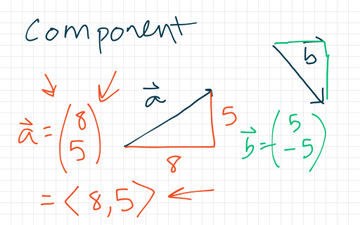 Component
a⃗ = (8
5)
= ⟨8,5⟩
a⃗
5
8
b
b⃗ = (5
-5)